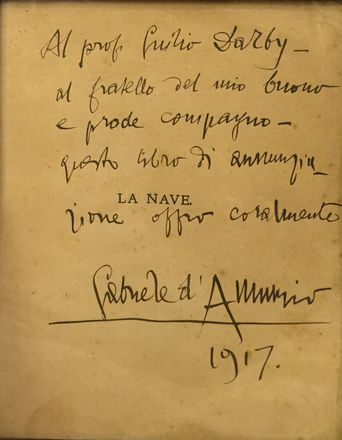 Al prof. Giulio Darby—
al fratello del mio buono
e prode compagno—
questo libro di annunzia_
LA NAVE.
zione offro coralmente
Gabriele d'Annunzio
1917.